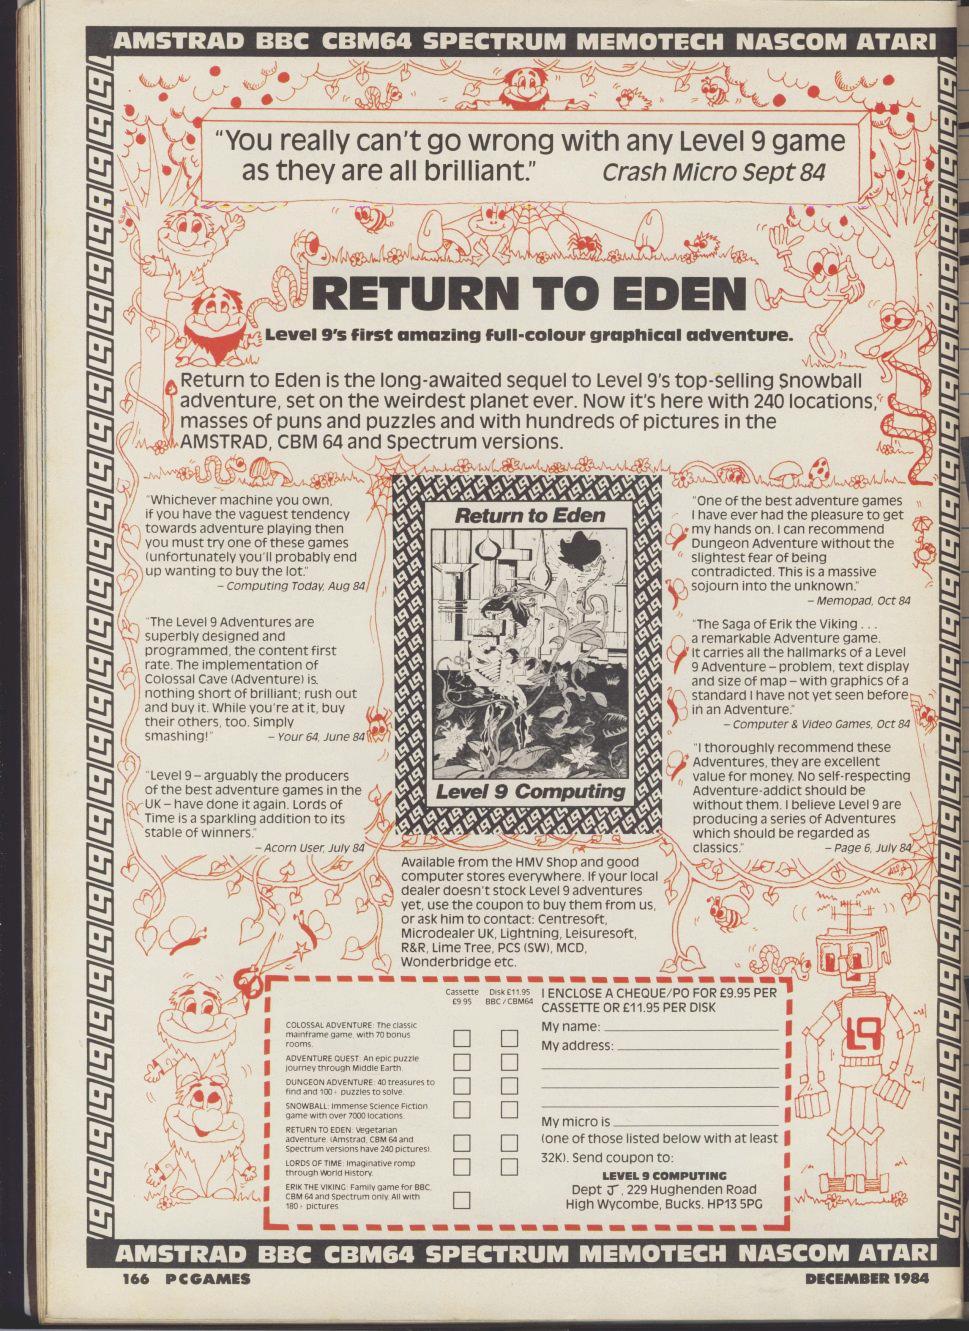 AMSTRAD BBC CBM64 SPECTRUM MEMOTECH NASCOM ATARI
"You really can't go wrong with any Level 9 game
as they are all brilliant." Crash Micro Sept 84
RETURN TO EDEN
Level 9's first amazing full-colour graphical adventure.
Return to Eden is the long-awaited sequel to Level 9's top-selling Snowball
adventure, set on the weirdest planet ever. Now it's here with 240 locations,
masses of puns and puzzles and with hundreds of pictures in the
AMSTRAD, CBM 64 and Spectrum versions.
"Whichever machine you own,
if you have the vaguest tendency
towards adventure playing then
you must try one of these games
(unfortunately you'll probably end
up wanting to buy the lot."
– Computing Today, Aug 84
"The Level 9 Adventures are
superbly designed and
programmed, the content first
rate. The implementation of
Colossal Cave (Adventure) is
nothing short of brilliant; rush out
and buy it. While you're at it, buy
their others, too. Simply
smashing!" – Your 64, June 84
"Level 9 – arguably the producers
of the best adventure games in the
UK – have done it again. Lords of
Time is a sparkling addition to its
stable of winners."
– Acorn User, July 84
Return to Eden
Level 9 Computing
"One of the best adventure games
I have ever had the pleasure to get
my hands on. I can recommend
Dungeon Adventure without the
slightest fear of being
contradicted. This is a massive
sojourn into the unknown."
– Memopad, Oct 84
"The Saga of Erik the Viking . . .
a remarkable Adventure game.
It carries all the hallmarks of a Level
9 Adventure – problem, text display
and size of map – with graphics of a
standard I have not yet seen before
in an Adventure."
– Computer & Video Games, Oct 84
"I thoroughly recommend these
Adventures, they are excellent
value for money. No self-respecting
Adventure-addict should be
without them. I believe Level 9 are
producing a series of Adventures
which should be regarded as
classics." – Page 6, July 84
Available from the HMV Shop and good
computer stores everywhere. If your local
dealer doesn't stock Level 9 adventures
yet, use the coupon to buy them from us,
or ask him to contact: Centresoft,
Microdealer UK, Lightning, Leisuresoft,
R&R, Lime Tree, PCS (SW), MCD,
Wonderbridge etc.
Cassette Disk £11.95
£9.95 BBC/CBM64
COLOSSAL ADVENTURE: The classic
mainframe game, with 70 bonus
rooms.
ADVENTURE QUEST: An epic puzzle
journey through Middle Earth.
DUNGEON ADVENTURE: 40 treasures to
find and 100+ puzzles to solve.
SNOWBALL: Immense Science Fiction
game with over 7000 locations.
RETURN TO EDEN: Vegetarian
adventure. (Amstrad, CBM 64 and
Spectrum versions have 240 pictures).
LORDS OF TIME: Imaginative romp
through World History.
ERIK THE VIKING: Family game for BBC,
CBM 64 and Spectrum only. All with
180+ pictures
I ENCLOSE A CHEQUE/PO FOR £9.95 PER
CASSETTE OR £11.95 PER DISK
My name:
My address:
My micro is
(one of those listed below with at least
32K). Send coupon to:
LEVEL 9 COMPUTING
Dept J, 229 Hughenden Road
High Wycombe, Bucks. HP13 5PG
L9
AMSTRAD BBC CBM64 SPECTRUM MEMOTECH NASCOM ATARI
166 PCGAMES
DECEMBER 1984